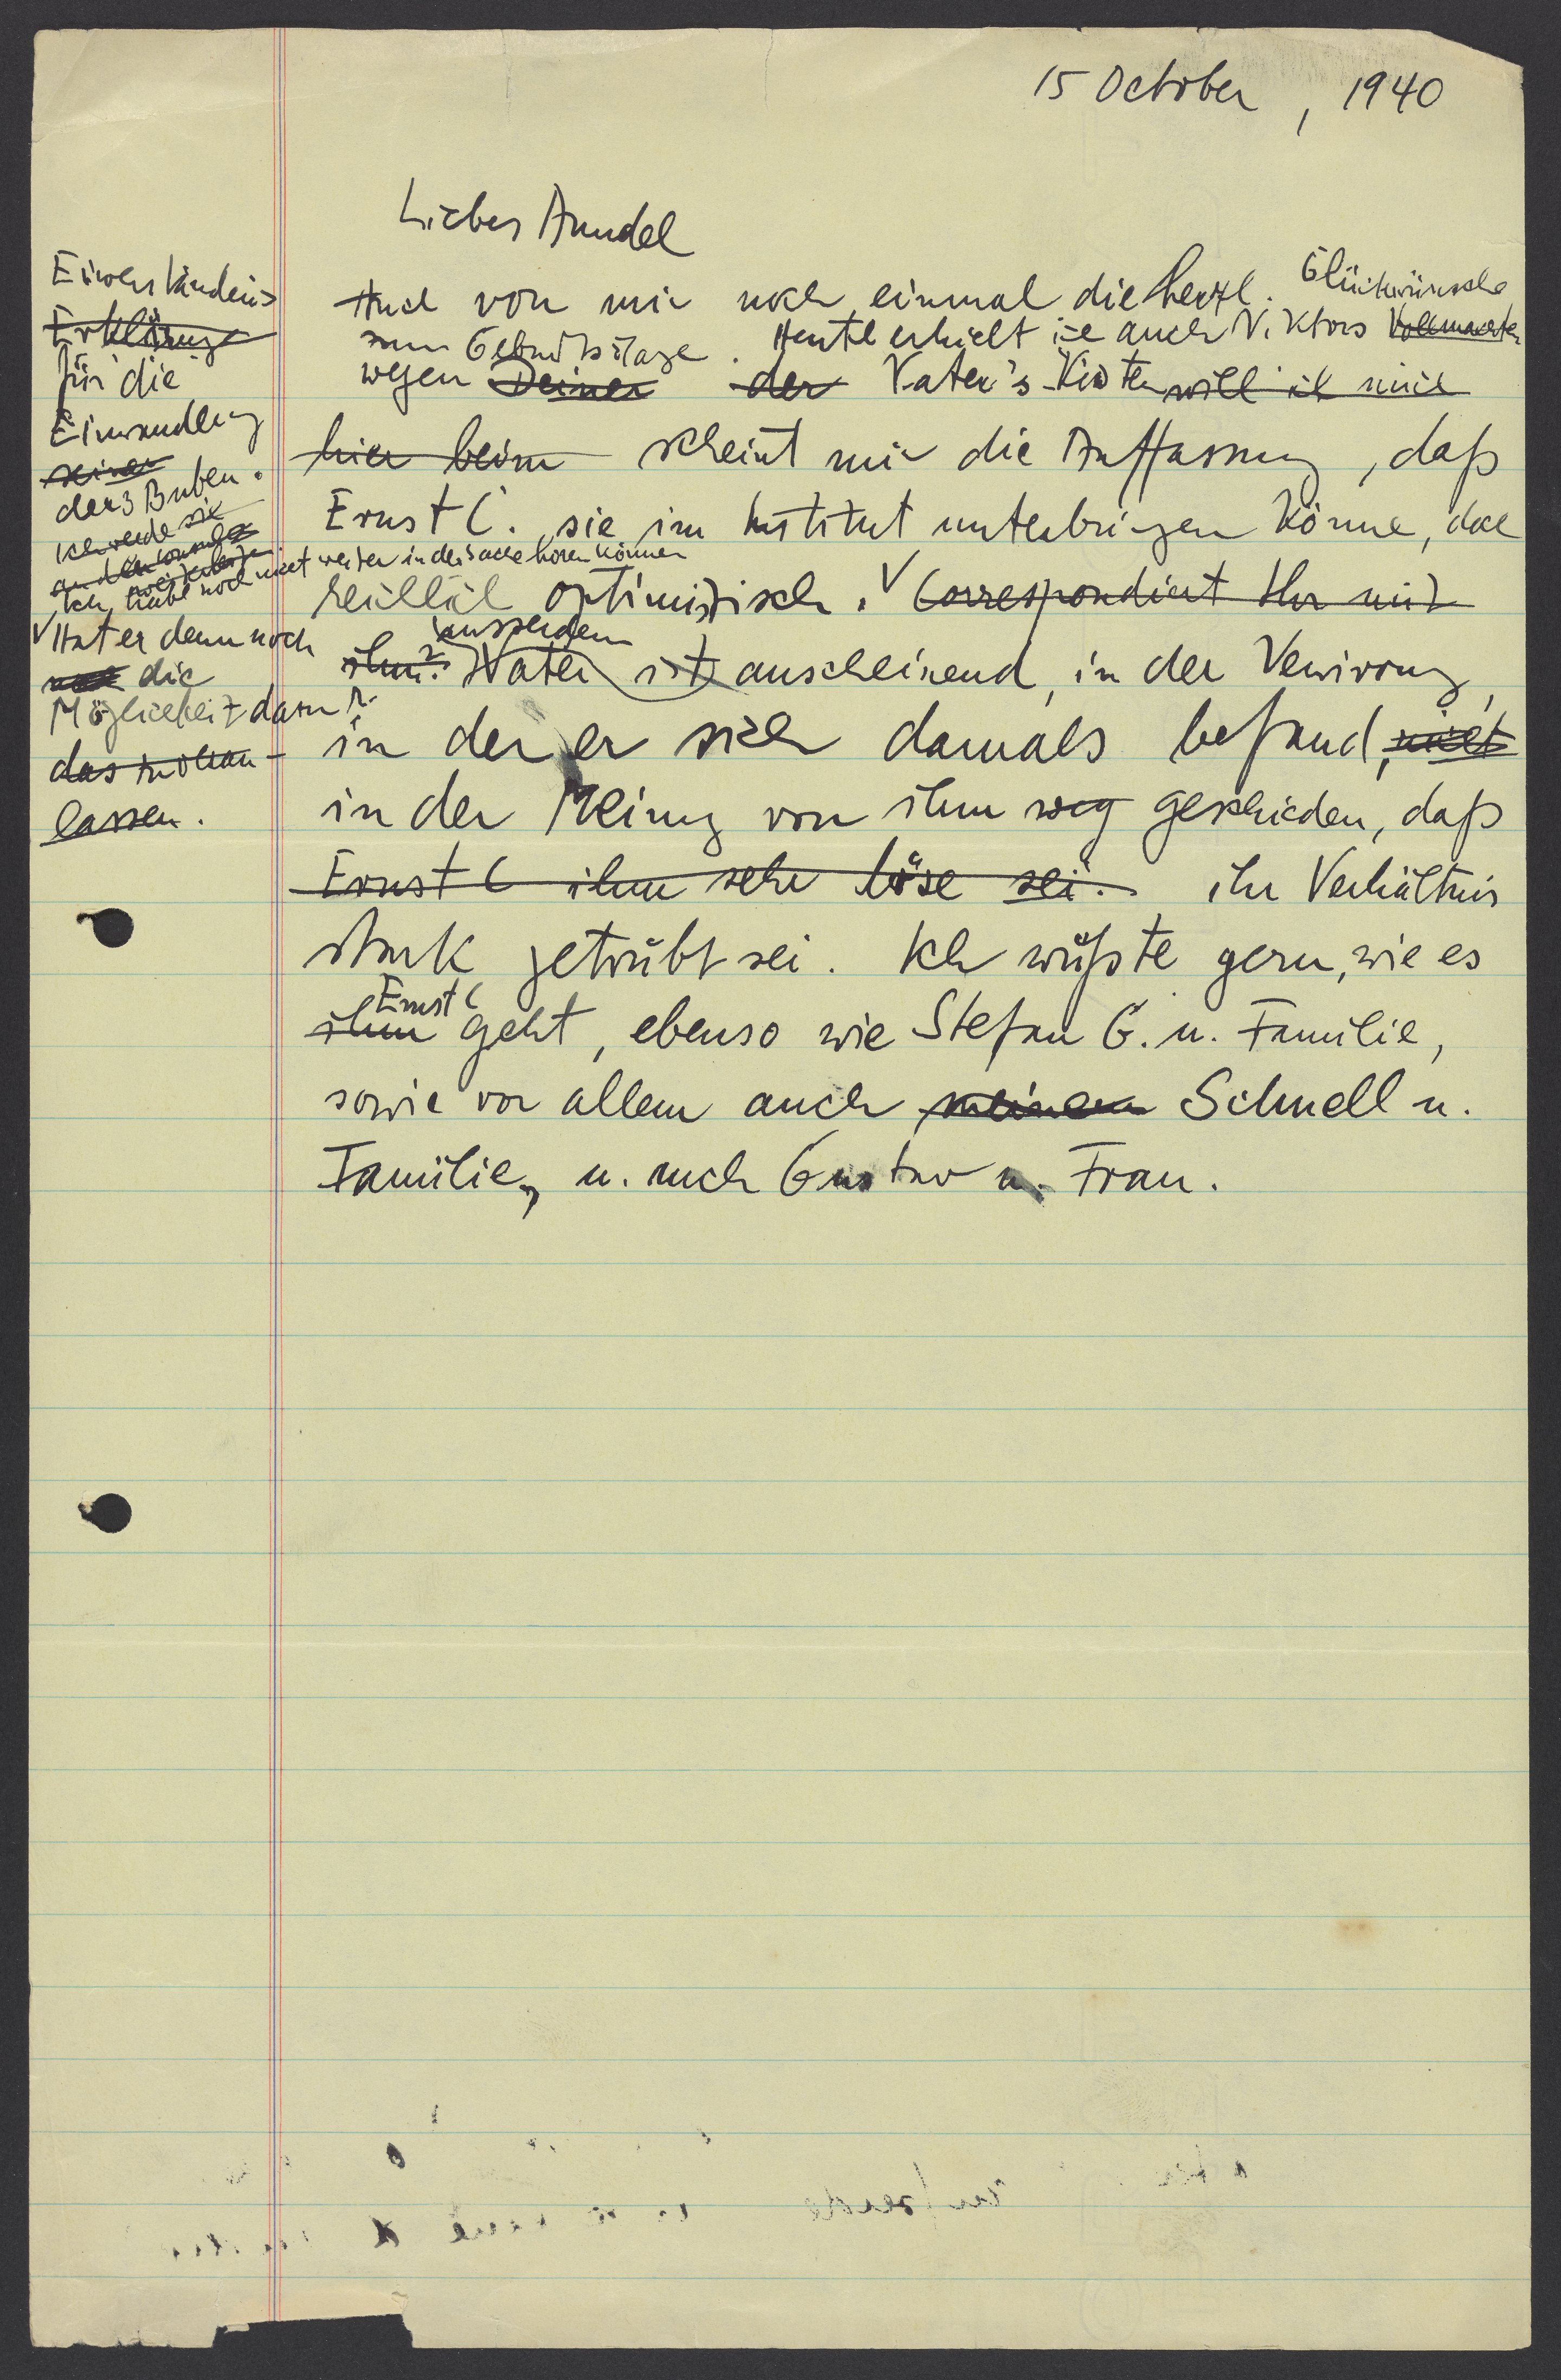 15 October, 1940
Liebes Anndel
Auch von mir noch einmal die herzl. Glückwünsche
zum Geburtstage. Heute erhielt ich auch Viktors Vollmachten
wegen Deiner der Vater's Kisten will ich mich
hier beim scheint mir die Auffassung, daß
Ernst C. sie im Institut unterbringen könne, doch
reichlich optimistisch. V Correspondiert Ihr mit
ausserdem
ihm? Vater ist anscheinend, in der Verwirrung,
in der er sich damals befand, nicht
in der Meinung von ihm weg geschieden, daß
Ernst C ihm sehr böse sei. ihr Verhältnis
stark getrübt sei. Ich wüßte gern, wie es
Ernst C
ihm geht, ebenso wie Stefan G. u. Familie,
sowie vor allem auch meinen Schnell u.
Familie, u. auch Gustav u. Frau.
Einverständnis
Erklärung
für die
Einwandlung
seiner
der 3 Buben.
Ich werde sie
an den
Ich habe noch nicht weiter in der Sache hören können
V Hat er denn noch
die
Möglichkeit dazu?
das
lassen.